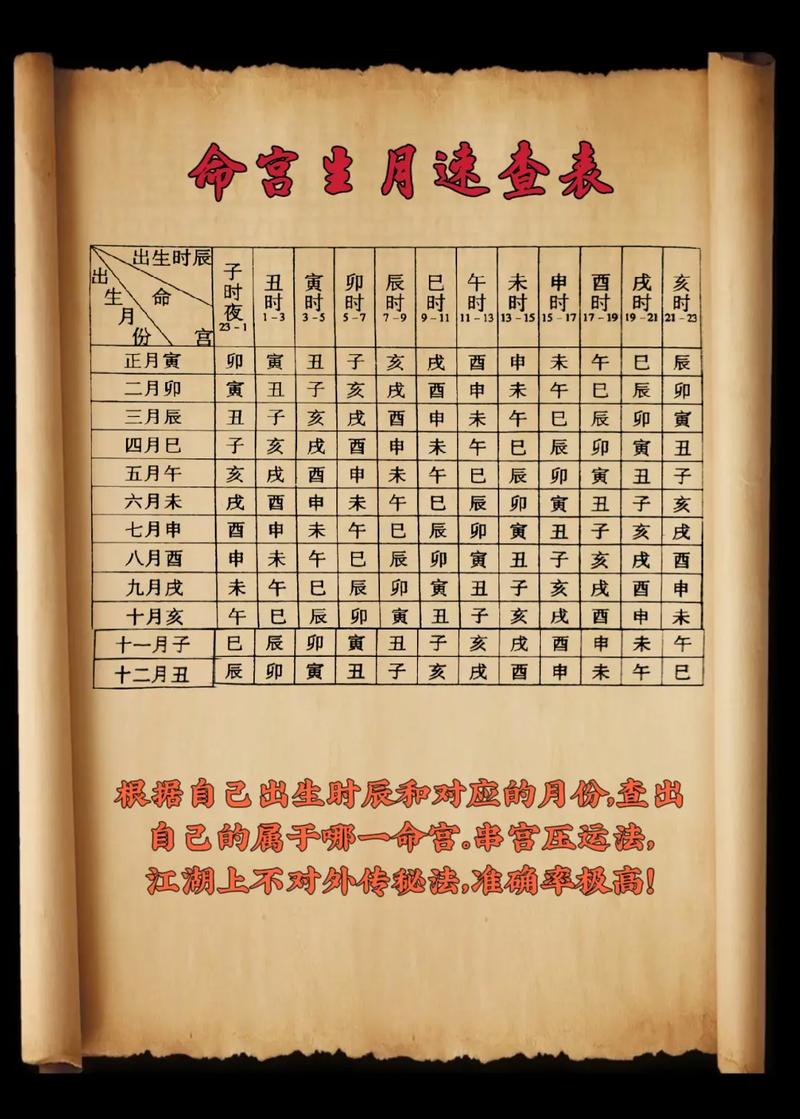 命宫生月速查表
出生时辰
命宫
出生月份
子时夜 23-1 丑时 1-3 寅时 3-5 卯时 5-7 辰时 7-9 巳时 9-11 午时 11-13 未时 13-15 申时 15-17 酉时 17-19 戌时 19-21 亥时 21-23
正月寅 卯 寅 丑 子 亥 戌 酉 申 未 午 巳 辰
二月卯 寅 丑 子 亥 戌 酉 申 未 午 巳 辰 卯
三月辰 丑 子 亥 戌 酉 申 未 午 巳 辰 卯 寅
四月巳 子 亥 戌 酉 申 未 午 巳 辰 卯 寅 丑
五月午 亥 戌 酉 申 未 午 巳 辰 卯 寅 丑 子
六月未 戌 酉 申 未 午 巳 辰 卯 寅 丑 子 亥
七月申 酉 申 未 午 巳 辰 卯 寅 丑 子 亥 戌
八月酉 申 未 午 巳 辰 卯 寅 丑 子 亥 戌 酉
九月戌 未 午 巳 辰 卯 寅 丑 子 亥 戌 酉 申
十月亥 午 巳 辰 卯 寅 丑 子 亥 戌 酉 申 未
十一月子 巳 辰 卯 寅 丑 子 亥 戌 酉 申 未 午
十二月丑 辰 卯 寅 丑 子 亥 戌 酉 申 未 午 巳
根据自己出生时辰和对应的月份,查出
自己的属于哪一命宫。串宫压运法,
江湖上不对外传秘法,准确率极高!